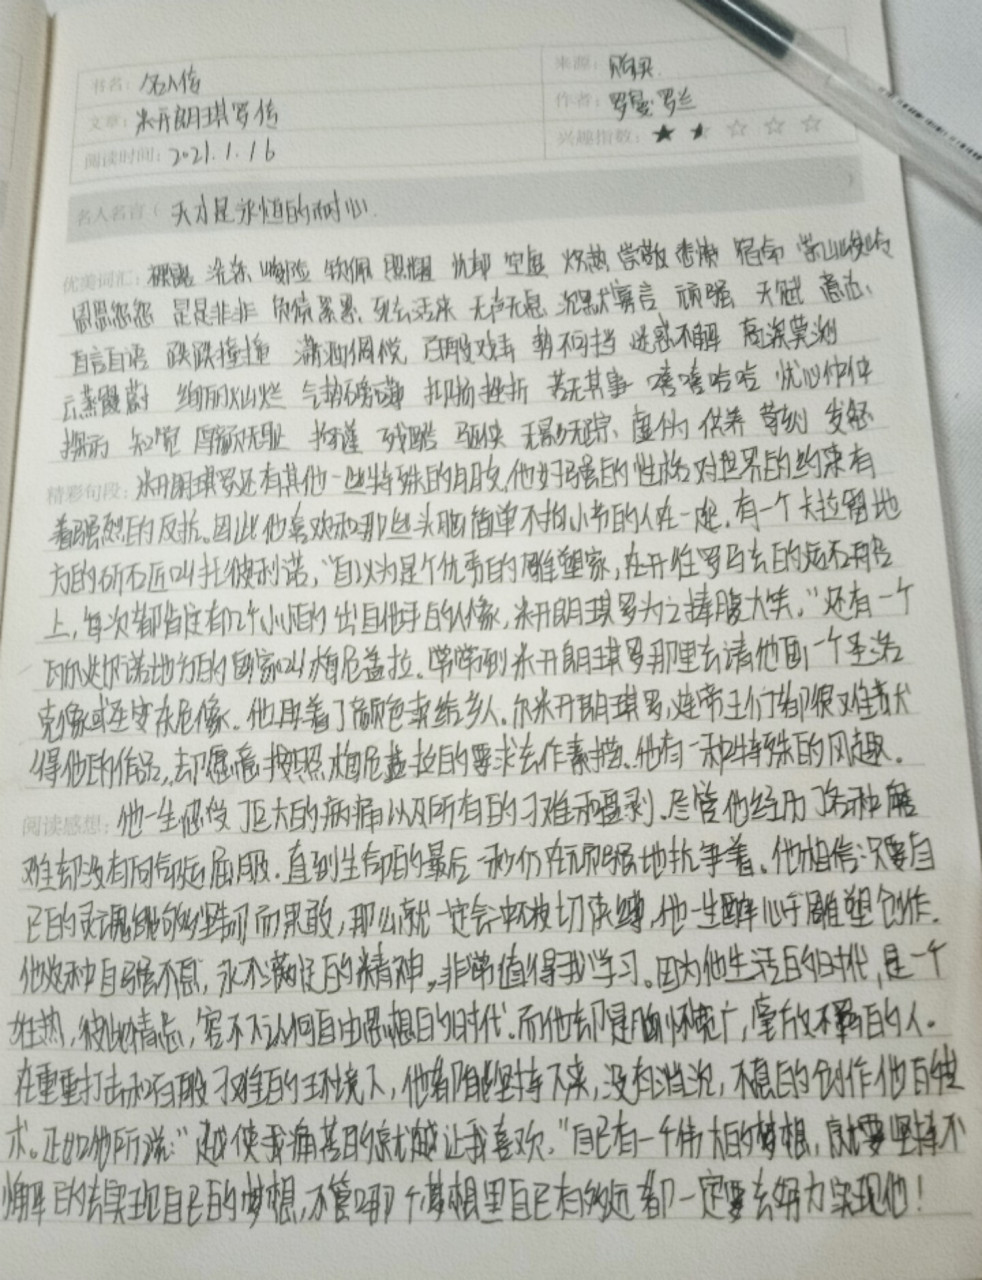 书名：名人传 来源：购买
文章：米开朗琪罗传 作者：罗曼·罗兰
阅读时间：2021.1.16 兴趣指数：★
名人名言：天才是永恒的耐心.
优美词汇：裸露 流东 峻险 钦佩 照耀 忧郁 空虚 炽热 崇敬 悲凄 宿命 崇山峻岭
恩恩怨怨 是是非非 负债累累 死去活来 无声无息 沉默寡言 顽强 天赋 意志
自言自语 跌跌撞撞 潇洒倜傥 百般戏弄 势不可挡 迷惑不解 高深莫测
云蒸霞蔚 绚丽灿烂 气势磅礴 抑扬挫折 若无其事 嘻嘻哈哈 忧心忡忡
知觉 厚颜无耻 残酷 驱使 无影无踪 虚伪 供养 苛刻 发怒
精彩句段：米开朗琪罗还有其他一些特殊的朋友.他好强的性格对世界的约束有
着强烈的反抗。因此他喜欢和那些头脑简单不拘小节的人在一起.有一个卡拉雷地
方的斫石匠叫扎彼利诺，“自以为是个优秀的雕塑家，在开往罗马去的运石船
上，每次都省过有几个小小的出自他手的人像，米开朗琪罗为之捧腹大笑。”还有一个
瓦尔达尔诺地方的画家叫梅尼盖拉.常常到米开朗琪罗那里去请他画一个圣洛
克像或圣安东尼像.他再着了颜色卖给乡人.尔米开朗琪罗,连帝王们都很难获
得他的作品,却愿意按照梅尼盖拉的要求去作素描.他有一种特殊的风趣.
阅读感想：他一生忍受了巨大的病痛以及所有的刁难和盘剥.尽管他经历了各种磨
难却没有向命运屈服.直到生命的最后一秒仍在顽强地抗争着。他相信:只要自
己的灵魂能够坚韧而果敢，那么就一定会冲破一切束缚.他一生醉心于雕塑创作.
他这种自强不息，永不满足的精神，非常值得我学习。因为他生活的时代，是一个
狂热，彼此猜忌，容不下任何自由思想的时代.而他却是胸怀宽广，豪放不羁的人。
在重重打击和百般刁难的环境下，他都能坚持下来，没有消沉，不息的创作他的艺
术。正如他所说：“越使我痛苦的就越让我喜欢.”自己有一个伟大的梦想，就要坚持不
懈的去实现自己的梦想，不管哪个梦想里自己有多远都一定要去努力实现他！